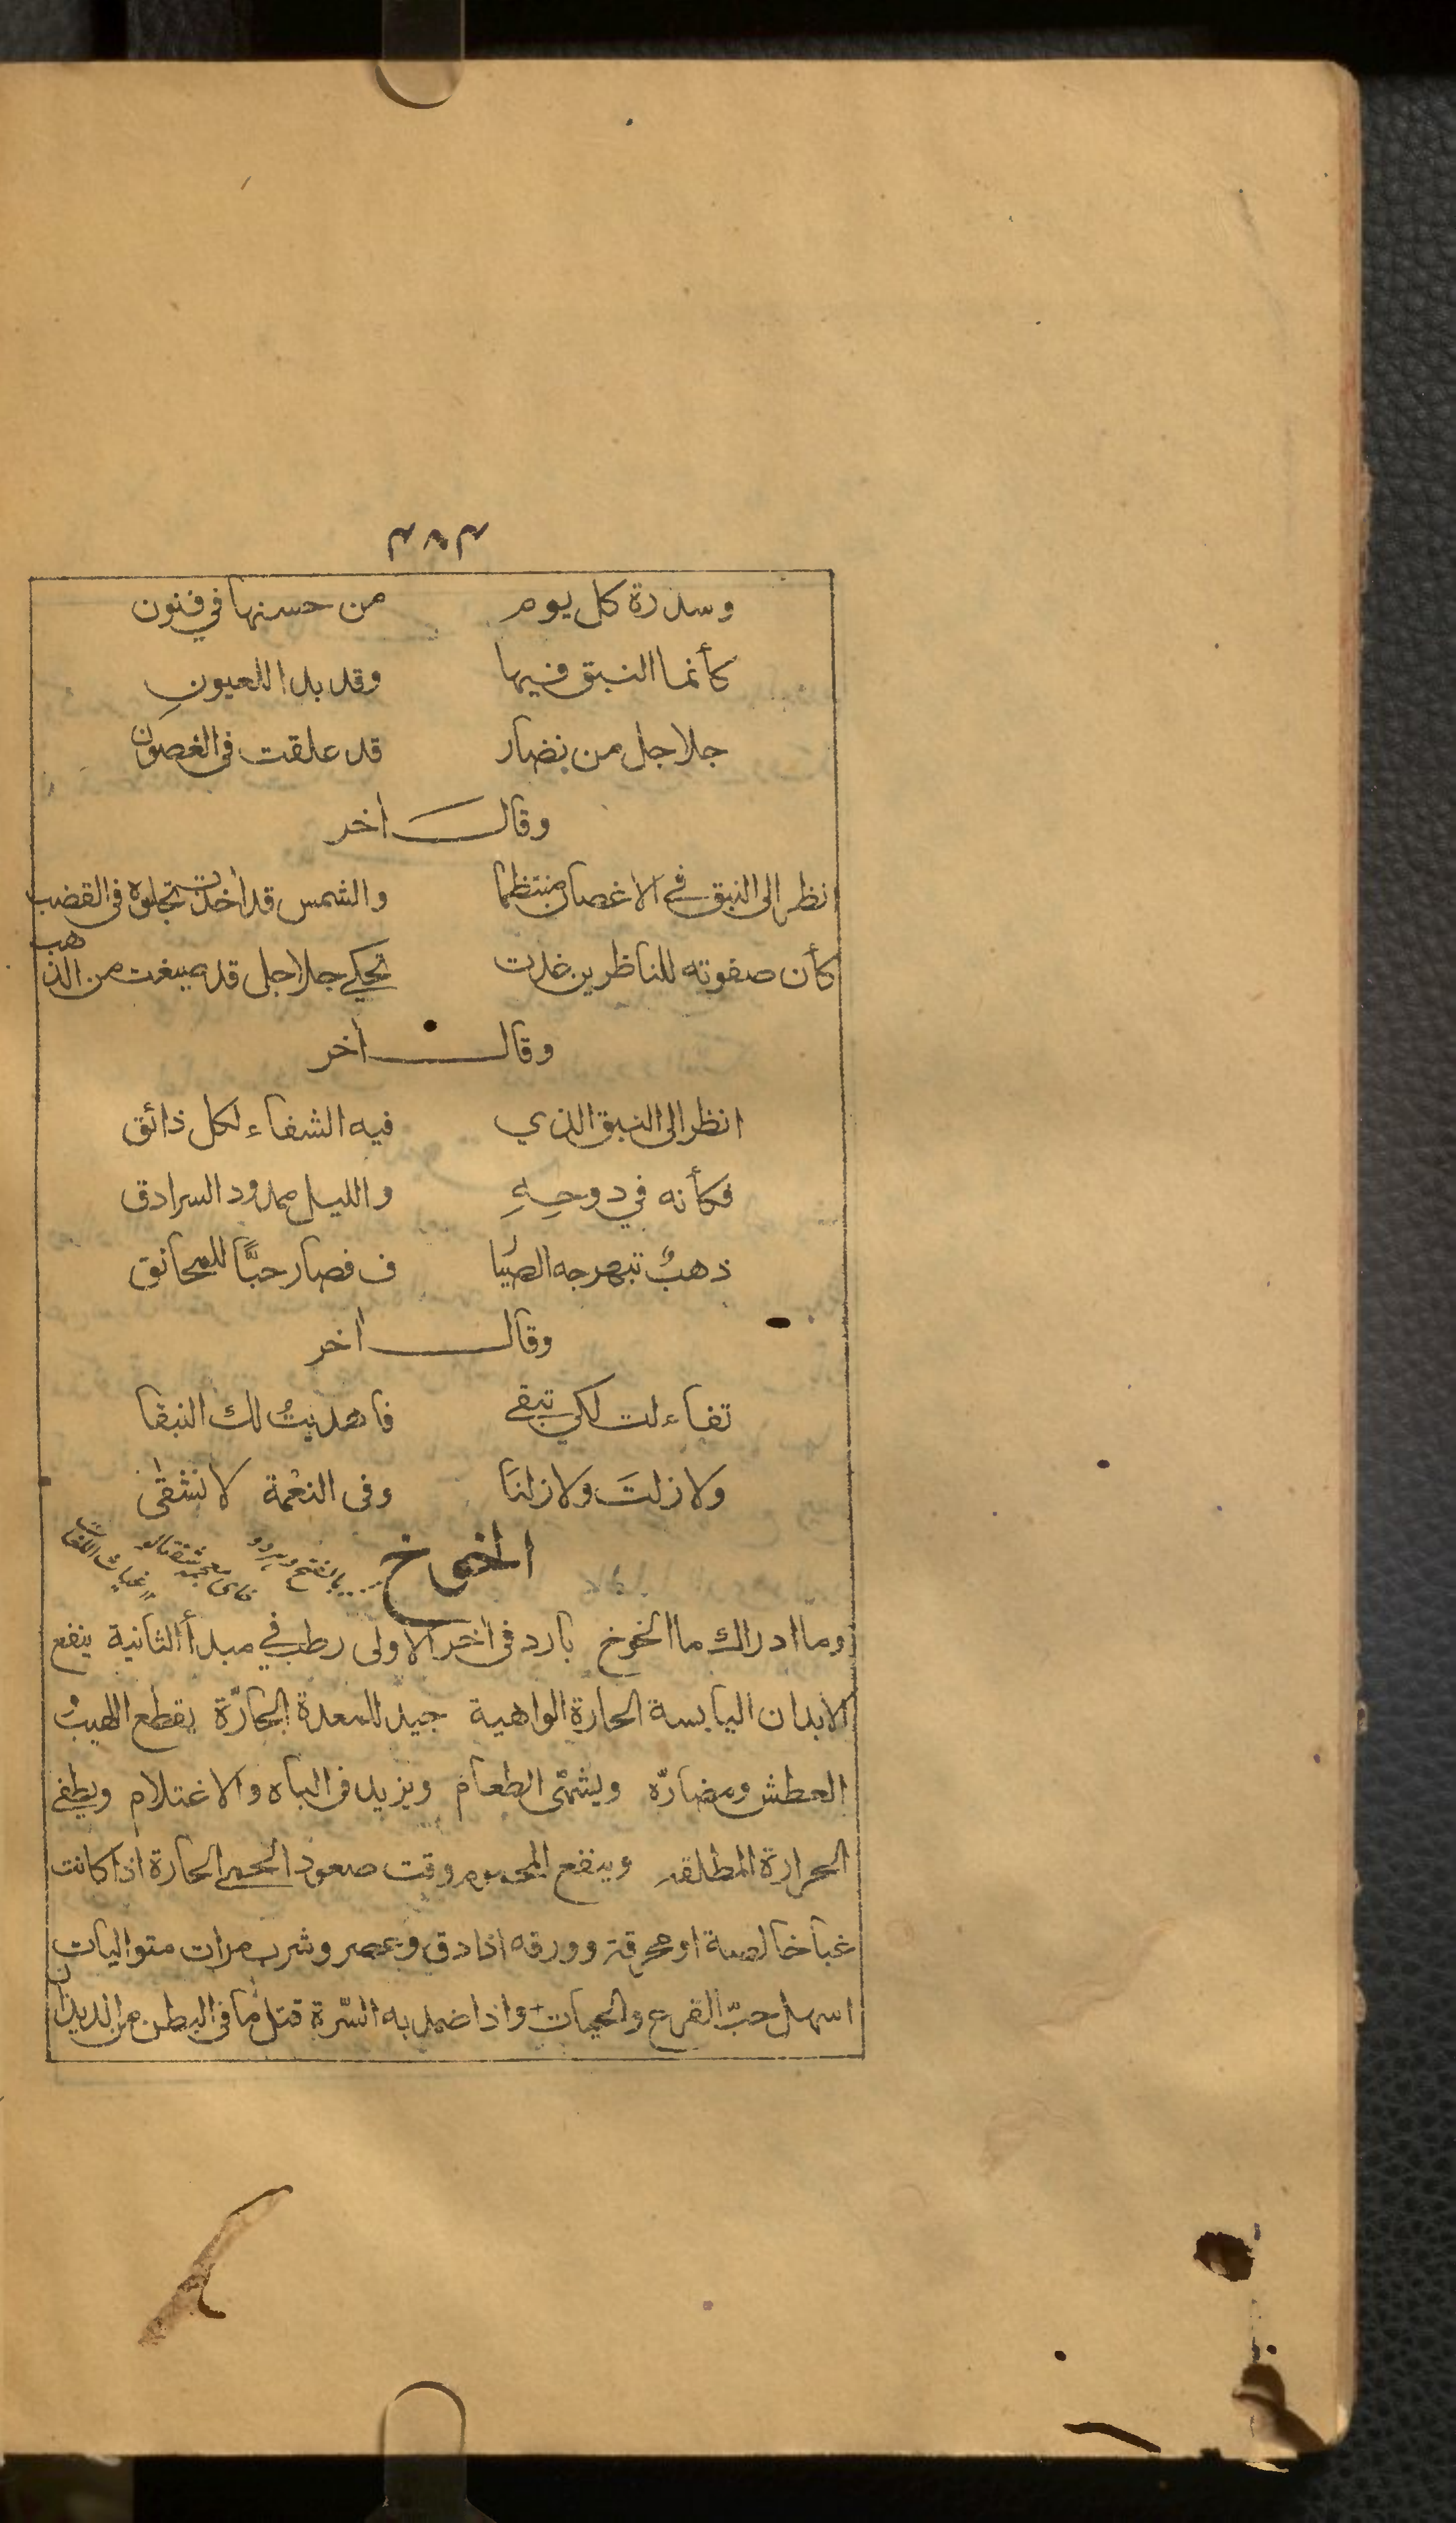 وسدرة كل يوم من حسنها في فنون
كأنما النبق فيها وقد بدا للعيونِ
جلاجل من نضار قد علقت في الغصون
وقال اخر
انظر الى النبق في الاغصان منتظما والشمس قد أخذت تجلوه في القضب
كأن صفوته للناظرين غدت تحكي جلاجل قد صيغت من الذهب
وقال اخر
انظر الى النبق الذي فيه الشفاء لكل ذائق
فكأنه في دوحِهِ والليل ممدود السرادق
ذهبٌ تبهرجه الصُيا ف فصار حبًّا للمخانق
وقال اخر
تفاءلت لكي تبقى فاهديتُ لك النبقا
ولا زلتَ ولا زلنَا وفى النعْمة لا نشقى
الخوخ بالفتح وبرود خاى معجمه شفتالو غياث اللغات
وما ادراك ما الخوخ بارد في اخر الاولى رطب في مبدأ الثانية ينفع
الابدان اليابسة الحارة الواهية جيد للمعدة الحارّة يقطع اللهيبُ
العطش ومضارّه ويشهّى الطعام ويزيد في الباه والاغتلام ويطفي
الحرارة المطلقه وينفع المحموم وقت صعود الحمى الحارة اذا كانت
غبا خالصة او محرقة وورقه اذا دق وعصر وشرب مرات متواليات
اسهل حبّ القرع والحيات واذا ضمد به السّرة قتل ما في البطن من الديدان